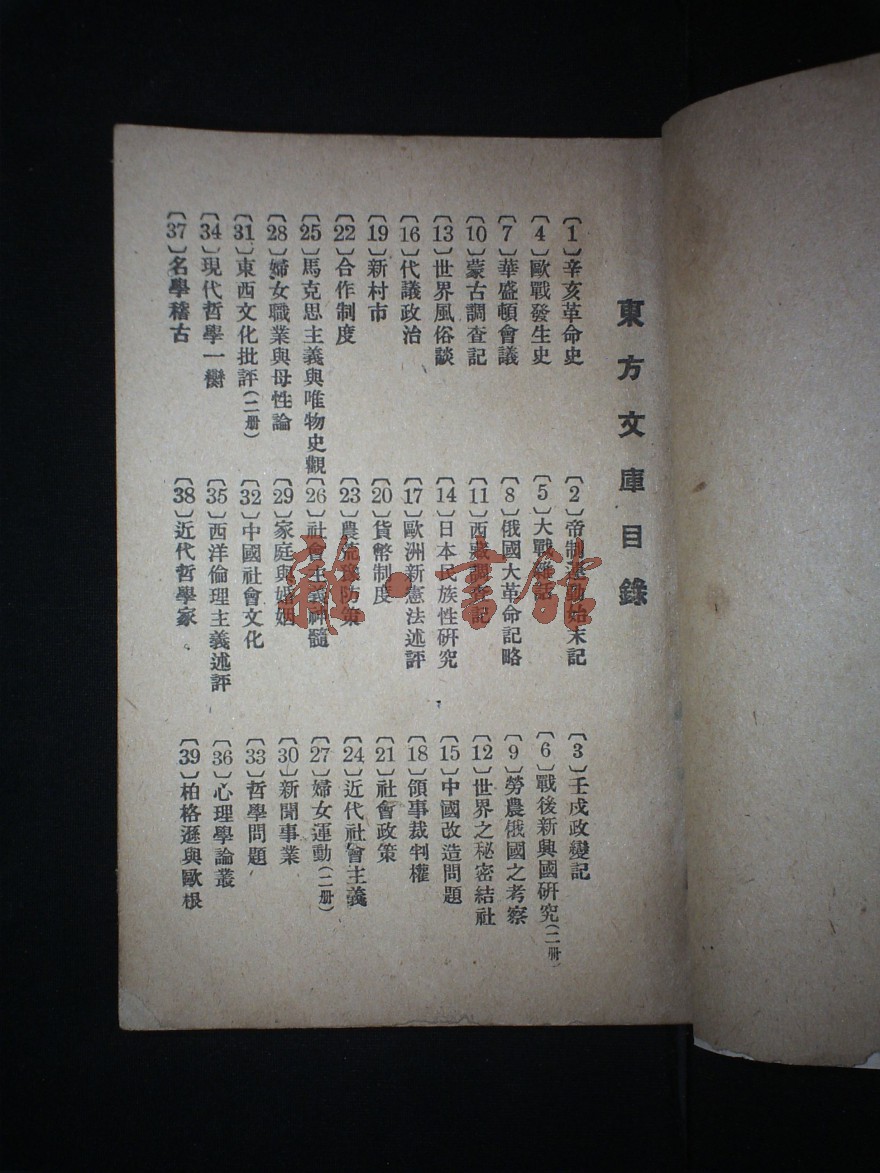 東方文庫目錄
〔1〕辛亥革命史
〔2〕帝制運動始末記
〔3〕壬戌政變記
〔4〕歐戰發生史
〔5〕大戰雜話
〔6〕戰後新興國研究(二册)
〔7〕華盛頓會議
〔8〕俄國大革命記略
〔9〕勞農俄國之考察
〔10〕蒙古調查記
〔11〕西藏調查記
〔12〕世界之秘密結社
〔13〕世界風俗談
〔14〕日本民族性研究
〔15〕中國改造問題
〔16〕代議政治
〔17〕歐洲新憲法述評
〔18〕領事裁判權
〔19〕新村市
〔20〕貨幣制度
〔21〕社會政策
〔22〕合作制度
〔23〕農荒預防策
〔24〕近代社會主義
〔25〕馬克思主義與唯物史觀
〔26〕社會主義神髓
〔27〕婦女運動(二册)
〔28〕婦女職業與母性論
〔29〕家庭與婚姻
〔30〕新聞事業
〔31〕東西文化批評(二册)
〔32〕中國社會文化
〔33〕哲學問題
〔34〕現代哲學一臠
〔35〕西洋倫理主義述評
〔36〕心理學論叢
〔37〕名學稽古
〔38〕近代哲學家
〔39〕柏格遜與歐根
雜·書館